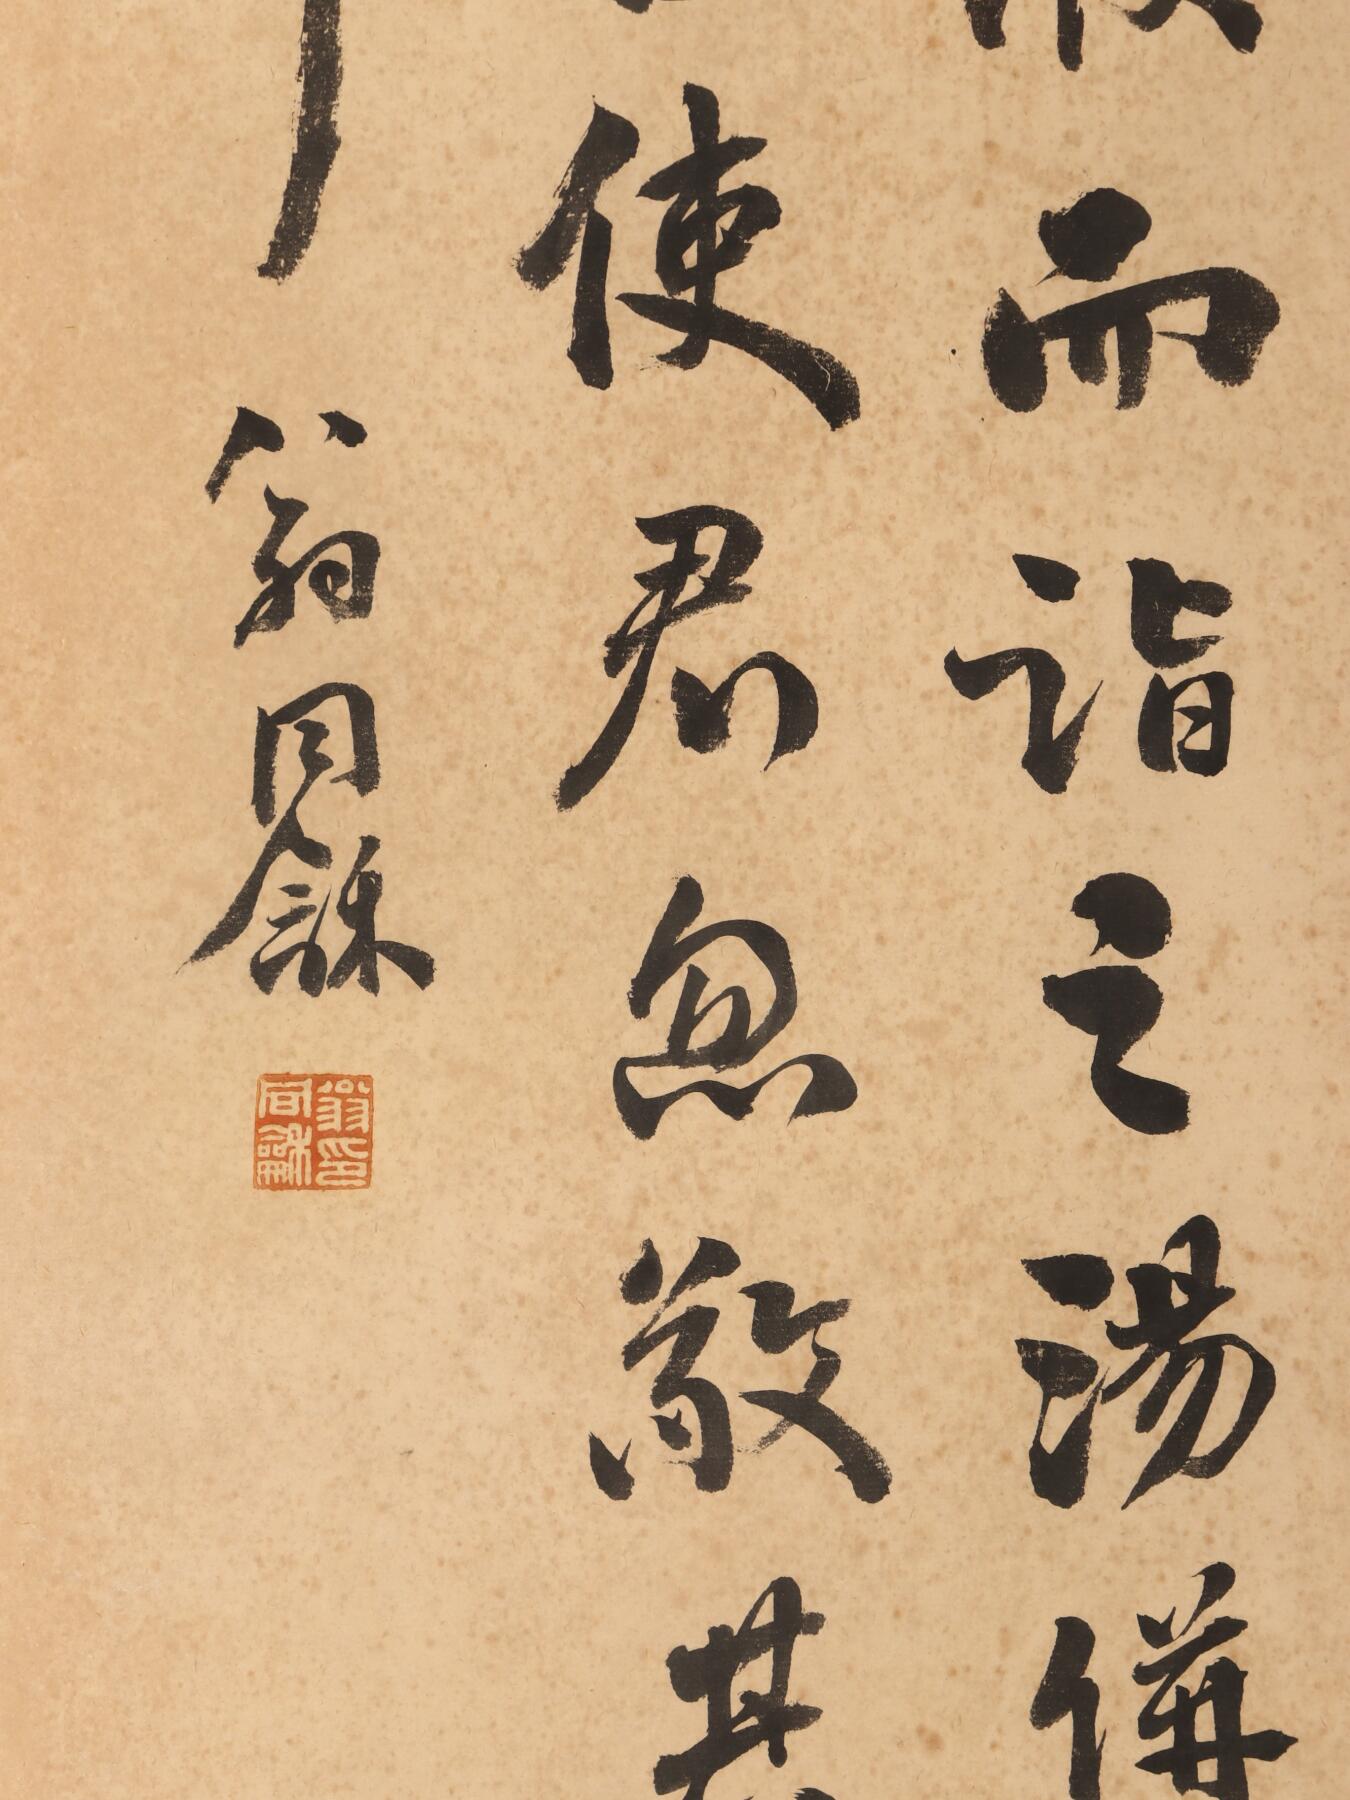 而詣之湯傋
使君忽敬其
翁同龢
翁同龢印